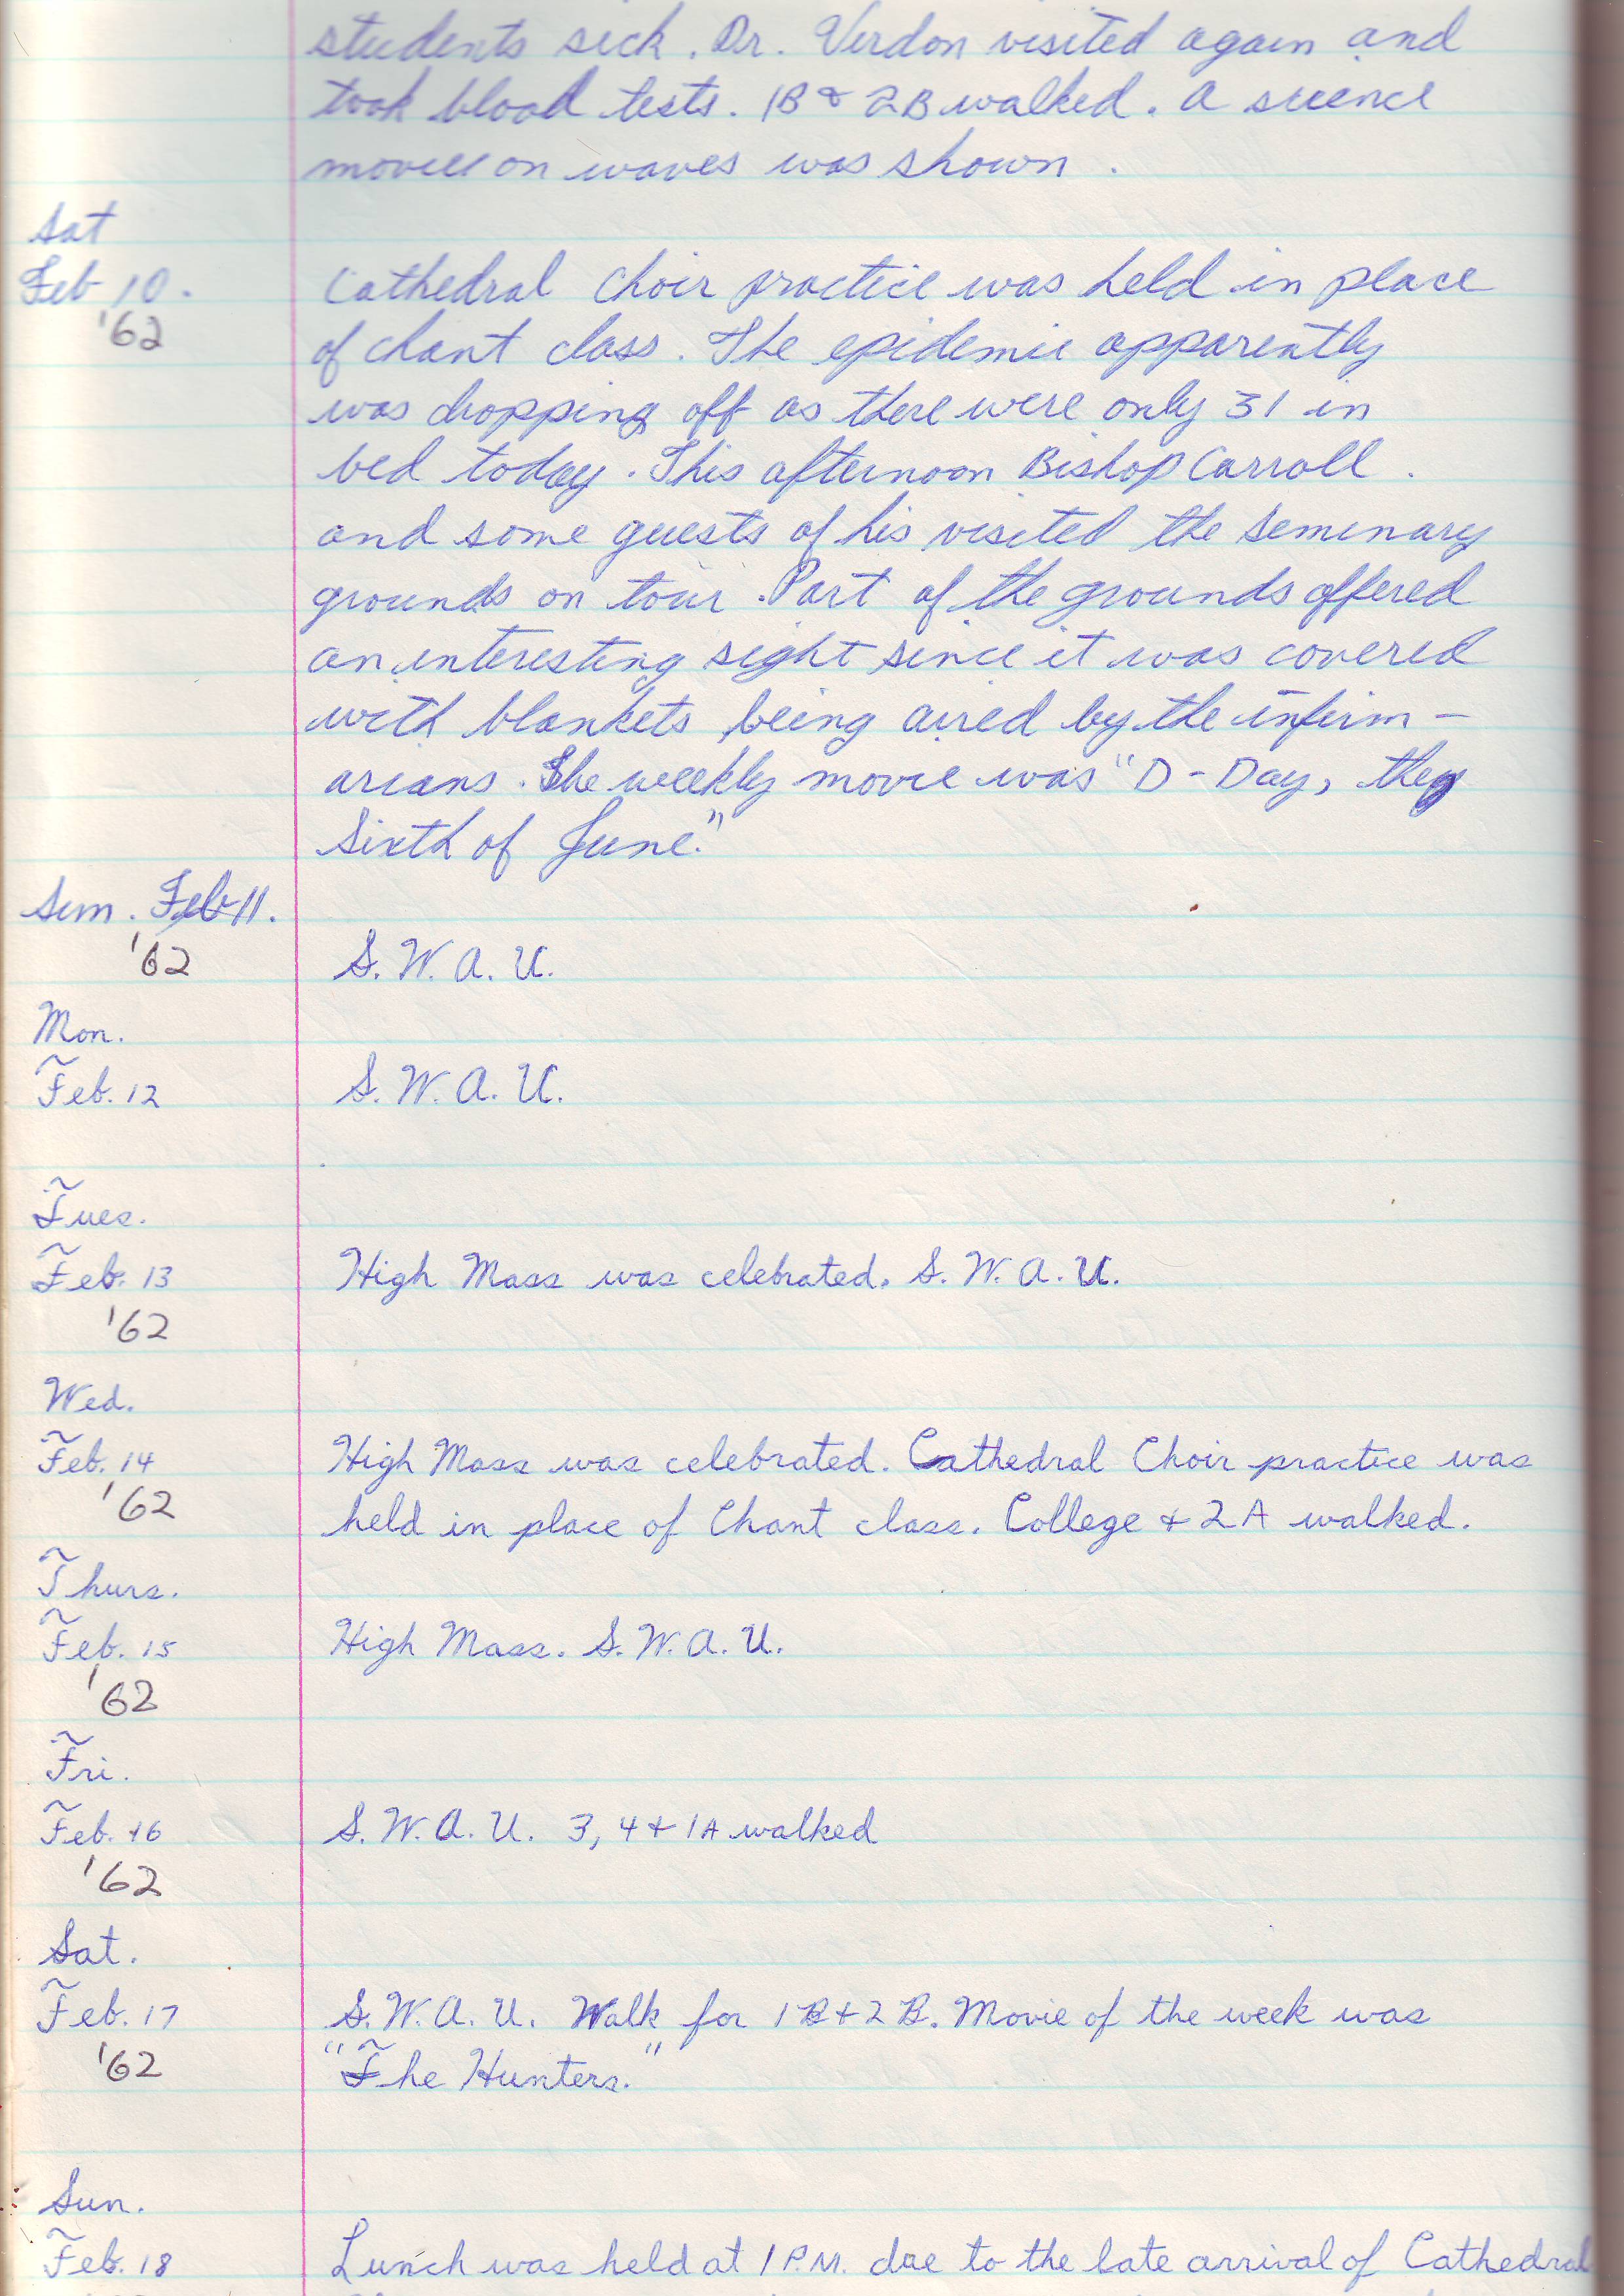 students sick. Dr. Verdon visited again and
took blood tests. 1B & 2B walked. A science
movie on waves was shown.
Sat
Feb 10.
'62
Cathedral Choir practice was held in place
of chant class. The epidemic apparently
was dropping off as there were only 31 in
bed today. This afternoon Bishop Carroll
and some guests of his visited the seminary
grounds on tour. Part of the grounds offered
an interesting sight since it was covered
with blankets being aired by the infirm-
arians. The weekly movie was "D-Day, the
Sixth of June."
Sun. Feb 11.
'62
S.W.A.U.
Mon.
Feb. 12
S.W.A.U.
Tues.
Feb. 13
'62
High Mass was celebrated. S.W.A.U.
Wed.
Feb. 14
'62
High Mass was celebrated. Cathedral Choir practice was
held in place of Chant class. College & 2A walked.
Thurs.
Feb. 15
'62
High Mass. S.W.A.U.
Fri.
Feb. 16
'62
S.W.A.U. 3, 4 & 1A walked
Sat.
Feb. 17
'62
S.W.A.U. Walk for 1B & 2B. Movie of the week was
"The Hunters."
Sun.
Feb. 18
Lunch was held at 1 P.M. due to the late arrival of Cathedral